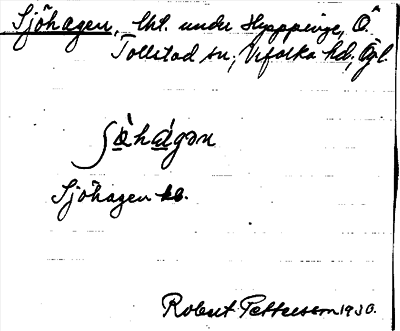 Sjöhagen, lht. under Hyppinge, Ö.
Tollstad sn, Vifolka hd, Ög.
ʃø̀hàgən
Sjöhagen
Robert Pettersson 1930.